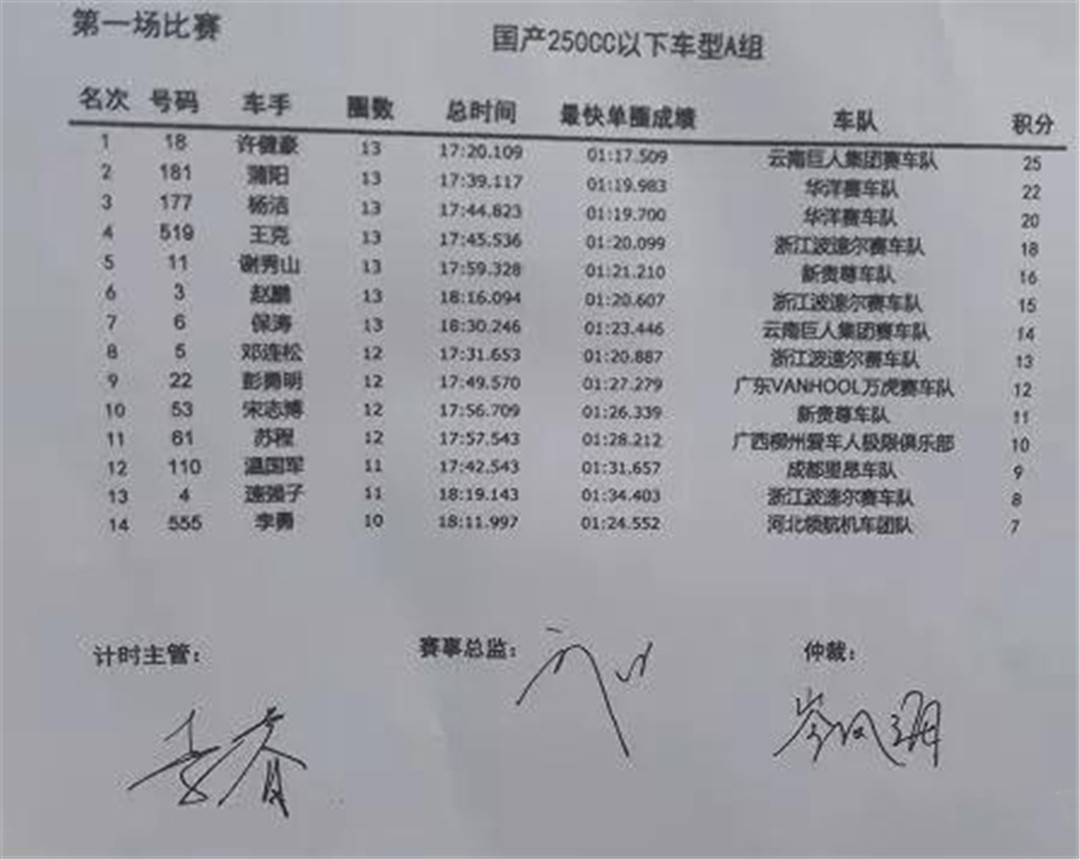 第一场比赛
国产250CC以下车型A组
名次 号码 车手 圈数 总时间 最快单圈成绩 车队 积分
1 18 许健豪 13 17:20.109 01:17.509 云南巨人集团赛车队 25
2 181 蒲阳 13 17:39.117 01:19.983 华洋赛车队 22
3 177 杨洁 13 17:44.823 01:19.700 华洋赛车队 20
4 519 王克 13 17:45.536 01:20.099 浙江波速尔赛车队 18
5 11 谢秀山 13 17:59.328 01:21.210 新贵尊车队 16
6 3 赵鹏 13 18:16.094 01:20.607 浙江波速尔赛车队 15
7 6 保涛 13 18:30.246 01:23.446 云南巨人集团赛车队 14
8 5 邓连松 12 17:31.653 01:20.887 浙江波速尔赛车队 13
9 22 彭勇明 12 17:49.570 01:27.279 广东VANHOOL万虎赛车队 12
10 53 宋志博 12 17:56.709 01:26.339 新贵尊车队 11
11 61 苏程 12 17:57.543 01:28.212 广西柳州爱车人极限俱乐部 10
12 110 温国军 11 17:42.543 01:31.657 成都里昂车队 9
13 4 速强子 11 18:19.143 01:34.403 浙江波速尔赛车队 8
14 555 李勇 10 18:11.997 01:24.552 河北领航机车团队 7
计时主管: 赛事总监: 仲裁: